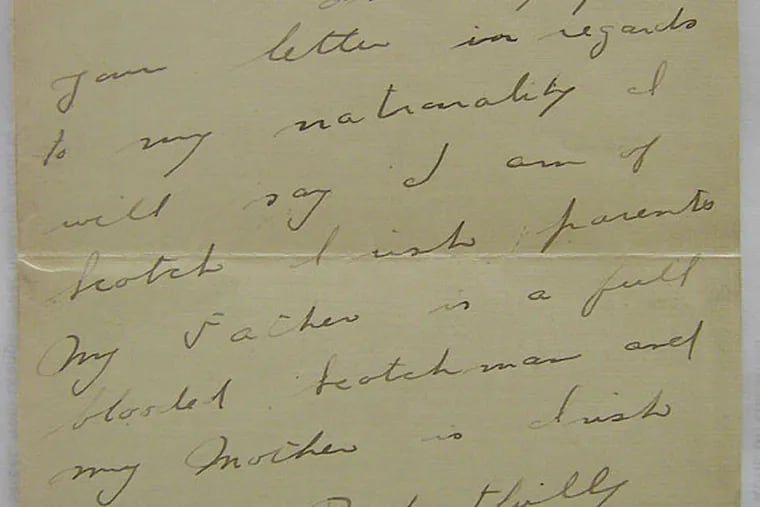 your letter in regards
to my nationality I
will say I am of
Scotch Irish parents
My Father is a full
blooded Scotchman and
my Mother is Irish